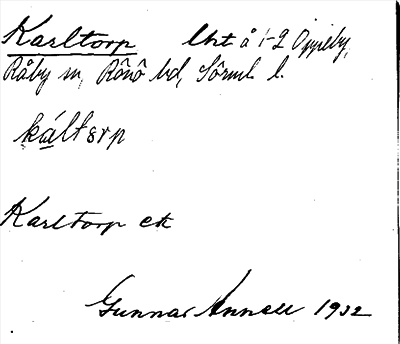 Karltorp lht å 1-2 Oppeby,
Råby sn, Rönö hd, Sörml. l.
káltɔrp
Karltorp ek
Gunnar Annell 1932